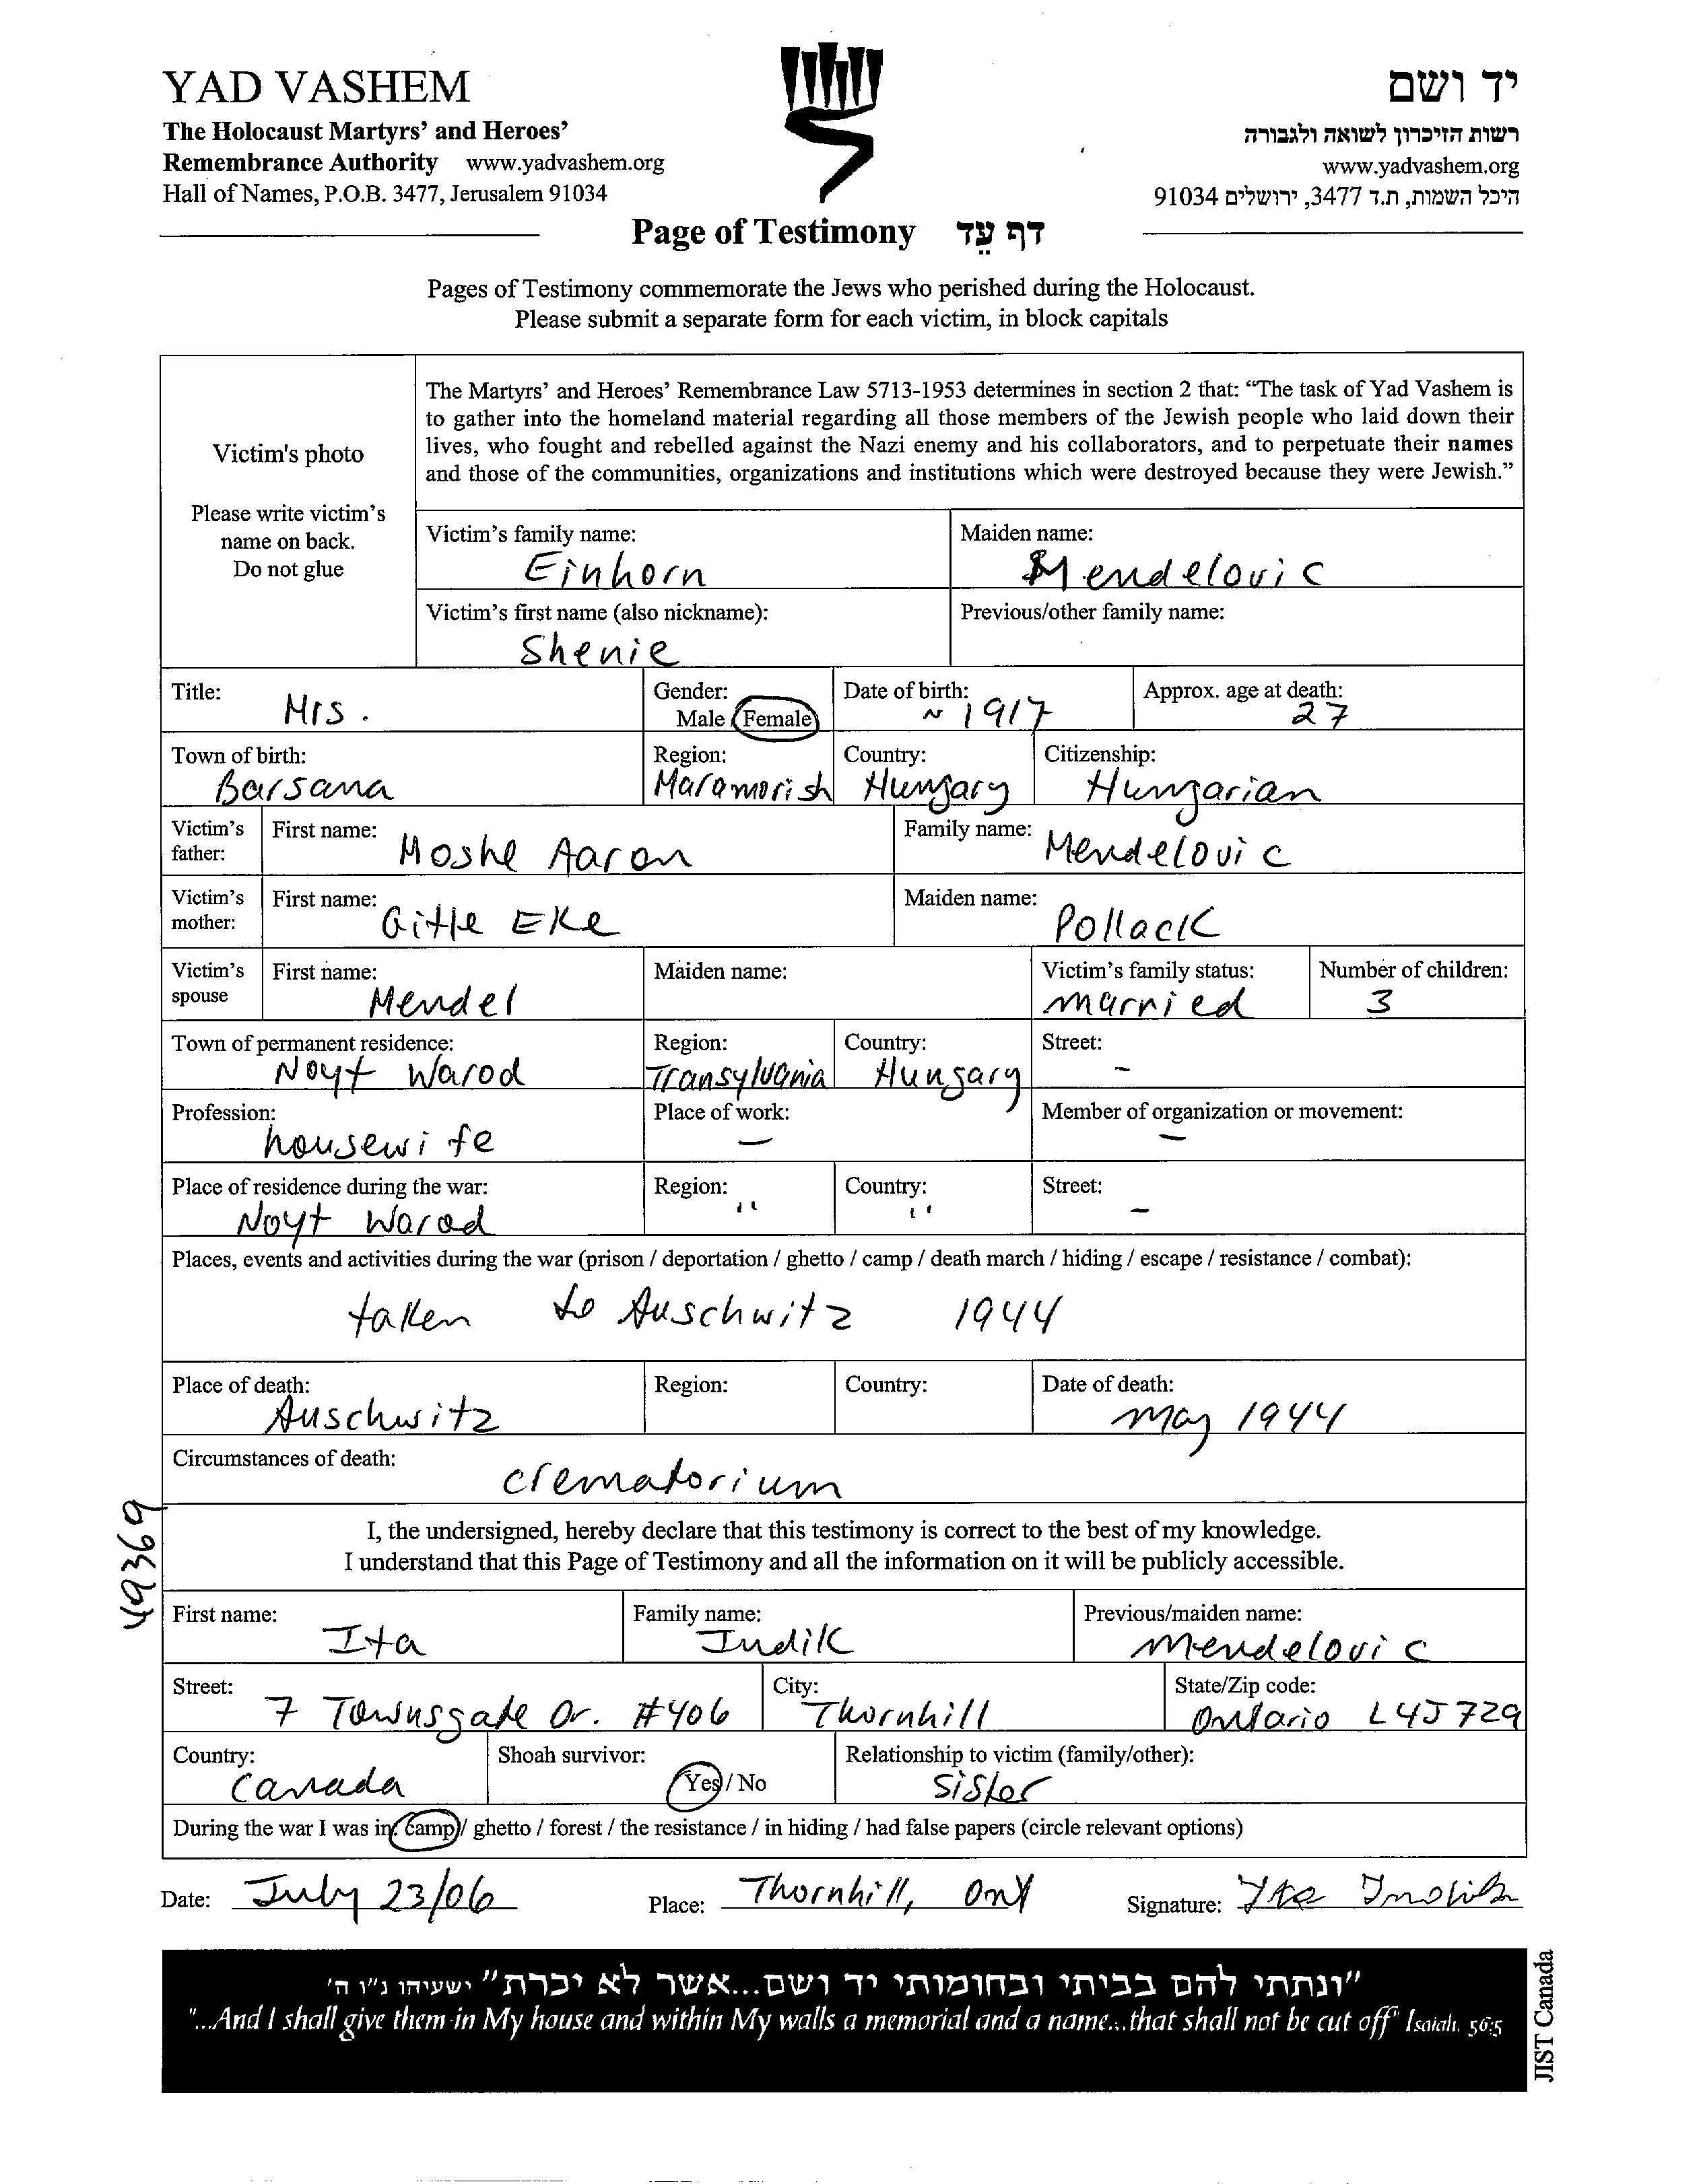 YAD VASHEM
The Holocaust Martyrs' and Heroes'
Remembrance Authority www.yadvashem.org
Hall of Names, P.O.B. 3477, Jerusalem 91034
יד ושם
רשות הזיכרון לשואה ולגבורה
www.yadvashem.org
היכל השמות, ת.ד 3477, ירושלים 91034
Page of Testimony דף עֵד
Pages of Testimony commemorate the Jews who perished during the Holocaust.
Please submit a separate form for each victim, in block capitals
Victim's photo
Please write victim's
name on back.
Do not glue
The Martyrs' and Heroes' Remembrance Law 5713-1953 determines in section 2 that: "The task of Yad Vashem is
to gather into the homeland material regarding all those members of the Jewish people who laid down their
lives, who fought and rebelled against the Nazi enemy and his collaborators, and to perpetuate their names
and those of the communities, organizations and institutions which were destroyed because they were Jewish."
Victim's family name: Maiden name:
Einhorn Mendelovic
Victim's first name (also nickname): Previous/other family name:
Shenie
Title: Gender: Date of birth: Approx. age at death:
Mrs. Male / Female ~ 1917 27
Town of birth: Region: Country: Citizenship:
Barsana Maramorish Hungary Hungarian
Victim's father: First name: Moshe Aaron Family name: Mendelovic
Victim's mother: First name: Gitle Eke Maiden name: Pollack
Victim's spouse First name: Mendel Maiden name: Victim's family status: married Number of children: 3
Town of permanent residence: Region: Country: Street:
Noyt Warod Transylvania Hungary -
Profession: Place of work: Member of organization or movement:
housewife - -
Place of residence during the war: Region: Country: Street:
Noyt Warod " " -
Places, events and activities during the war (prison / deportation / ghetto / camp / death march / hiding / escape / resistance / combat):
taken to Auschwitz 1944
Place of death: Region: Country: Date of death:
Auschwitz May 1944
Circumstances of death:
crematorium
49369
I, the undersigned, hereby declare that this testimony is correct to the best of my knowledge.
I understand that this Page of Testimony and all the information on it will be publicly accessible.
First name: Family name: Previous/maiden name:
Ita Indik Mendelovic
Street: City: State/Zip code:
7 Townsgate Dr. #406 Thornhill Ontario L4J 7Z9
Country: Shoah survivor: Relationship to victim (family/other):
Canada Yes / No sister
During the war I was in: camp / ghetto / forest / the resistance / in hiding / had false papers (circle relevant options)
Date: July 23/06 Place: Thornhill, Ont Signature: Ita Indik
"ונתתי להם בביתי ובחומותי יד ושם...אשר לא יכרת" ישעיהו נ"ו ה'
"...And I shall give them in My house and within My walls a memorial and a name...that shall not be cut off" Isaiah. 56:5
JIST Canada